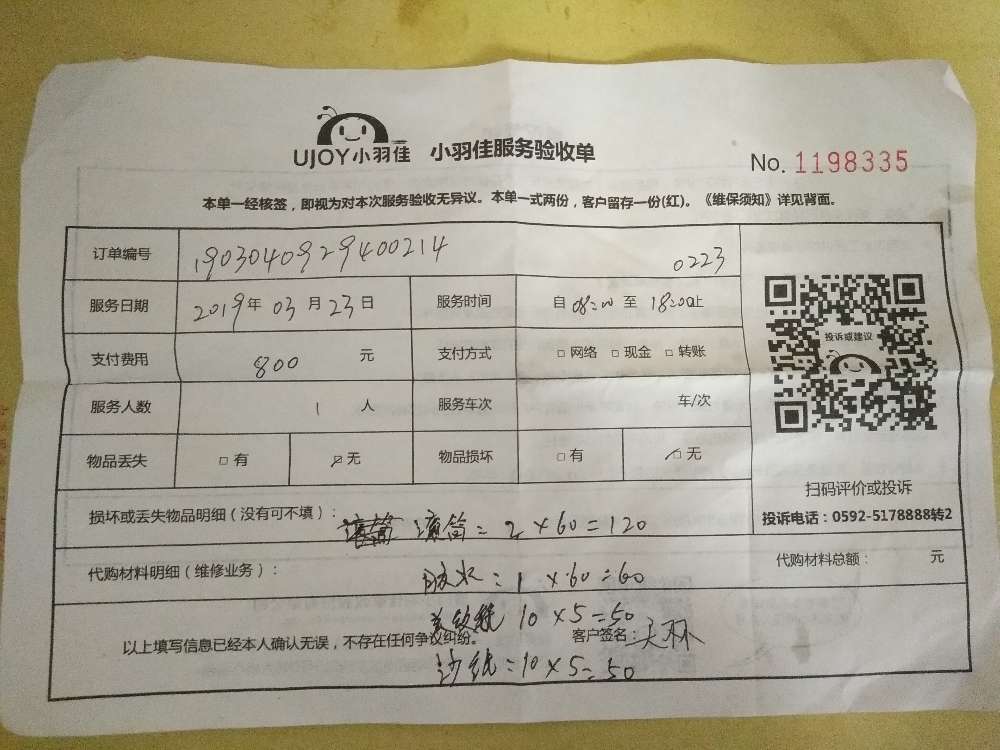 UJOY小羽佳 小羽佳服务验收单
No. 1198335
本单一经核签，即视为对本次服务验收无异议。本单一式两份，客户留存一份(红)。《维保须知》详见背面。
订单编号 1903040929400214 0223
服务日期 2019年 03月 23日 服务时间 自 08:00 至 18:00止
支付费用 800 元 支付方式 □ 网络 □ 现金 □ 转账
投诉或建议
服务人数 1 人 服务车次 车/次
物品丢失 □ 有 ☑ 无 物品损坏 □ 有 ☑ 无
扫码评价或投诉
投诉电话：0592-5178888转2
损坏或丢失物品明细（没有可不填）： 滚筒：2×60=120
代购材料明细（维修业务）： 胶水：1×60=60
代购材料总额： 元
美纹纸 10×5=50
以上填写信息已经本人确认无误，不存在任何争议纠纷。 客户签名：
沙纸：10×5=50